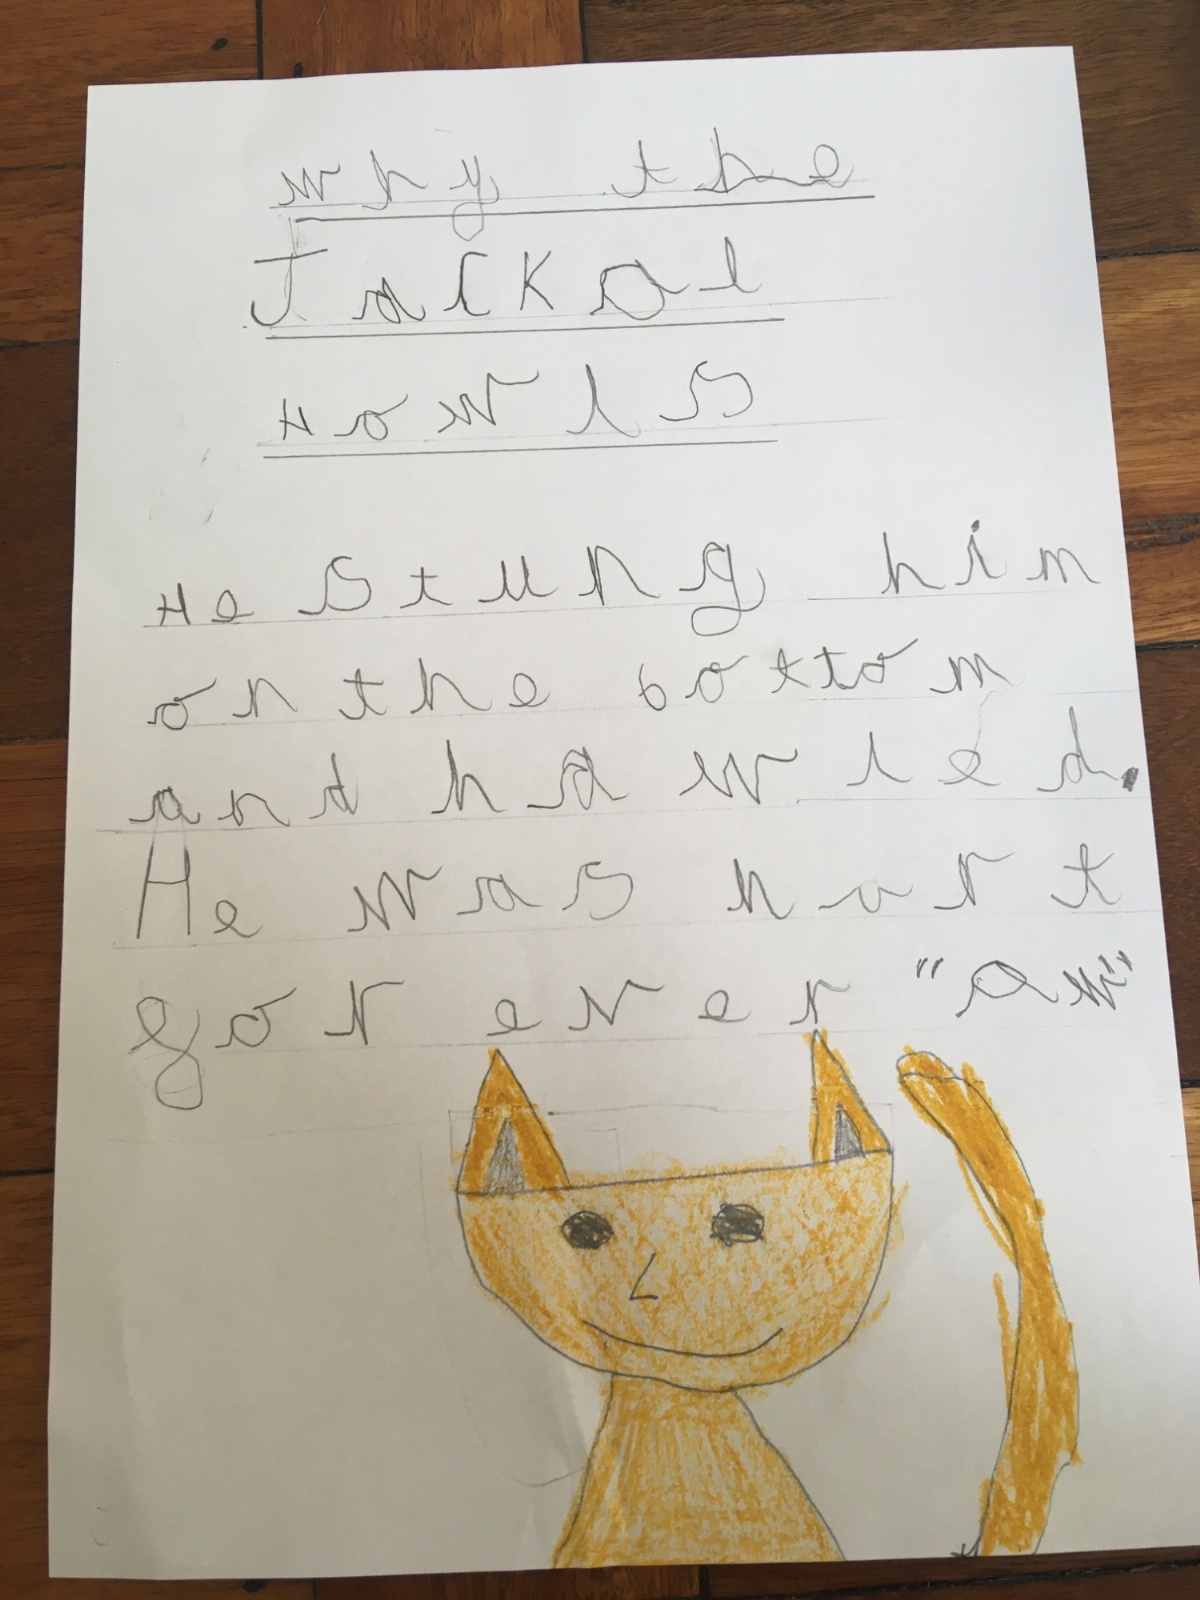 why the
Jackal
Howls
He stung him
on the bottom
and hawled.
He was hart
for ever "Aw"